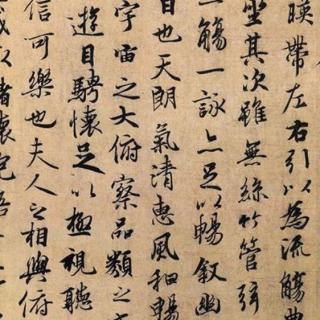 暎帶左右引以為流觴曲
坐其次雖無絲竹管弦
一觴一詠亦足以暢叙幽
日也天朗氣清惠風和暢
宇宙之大俯察品類之
遊目騁懷足以極視聽
信可樂也夫人之相與俯
或取諸懷抱悟